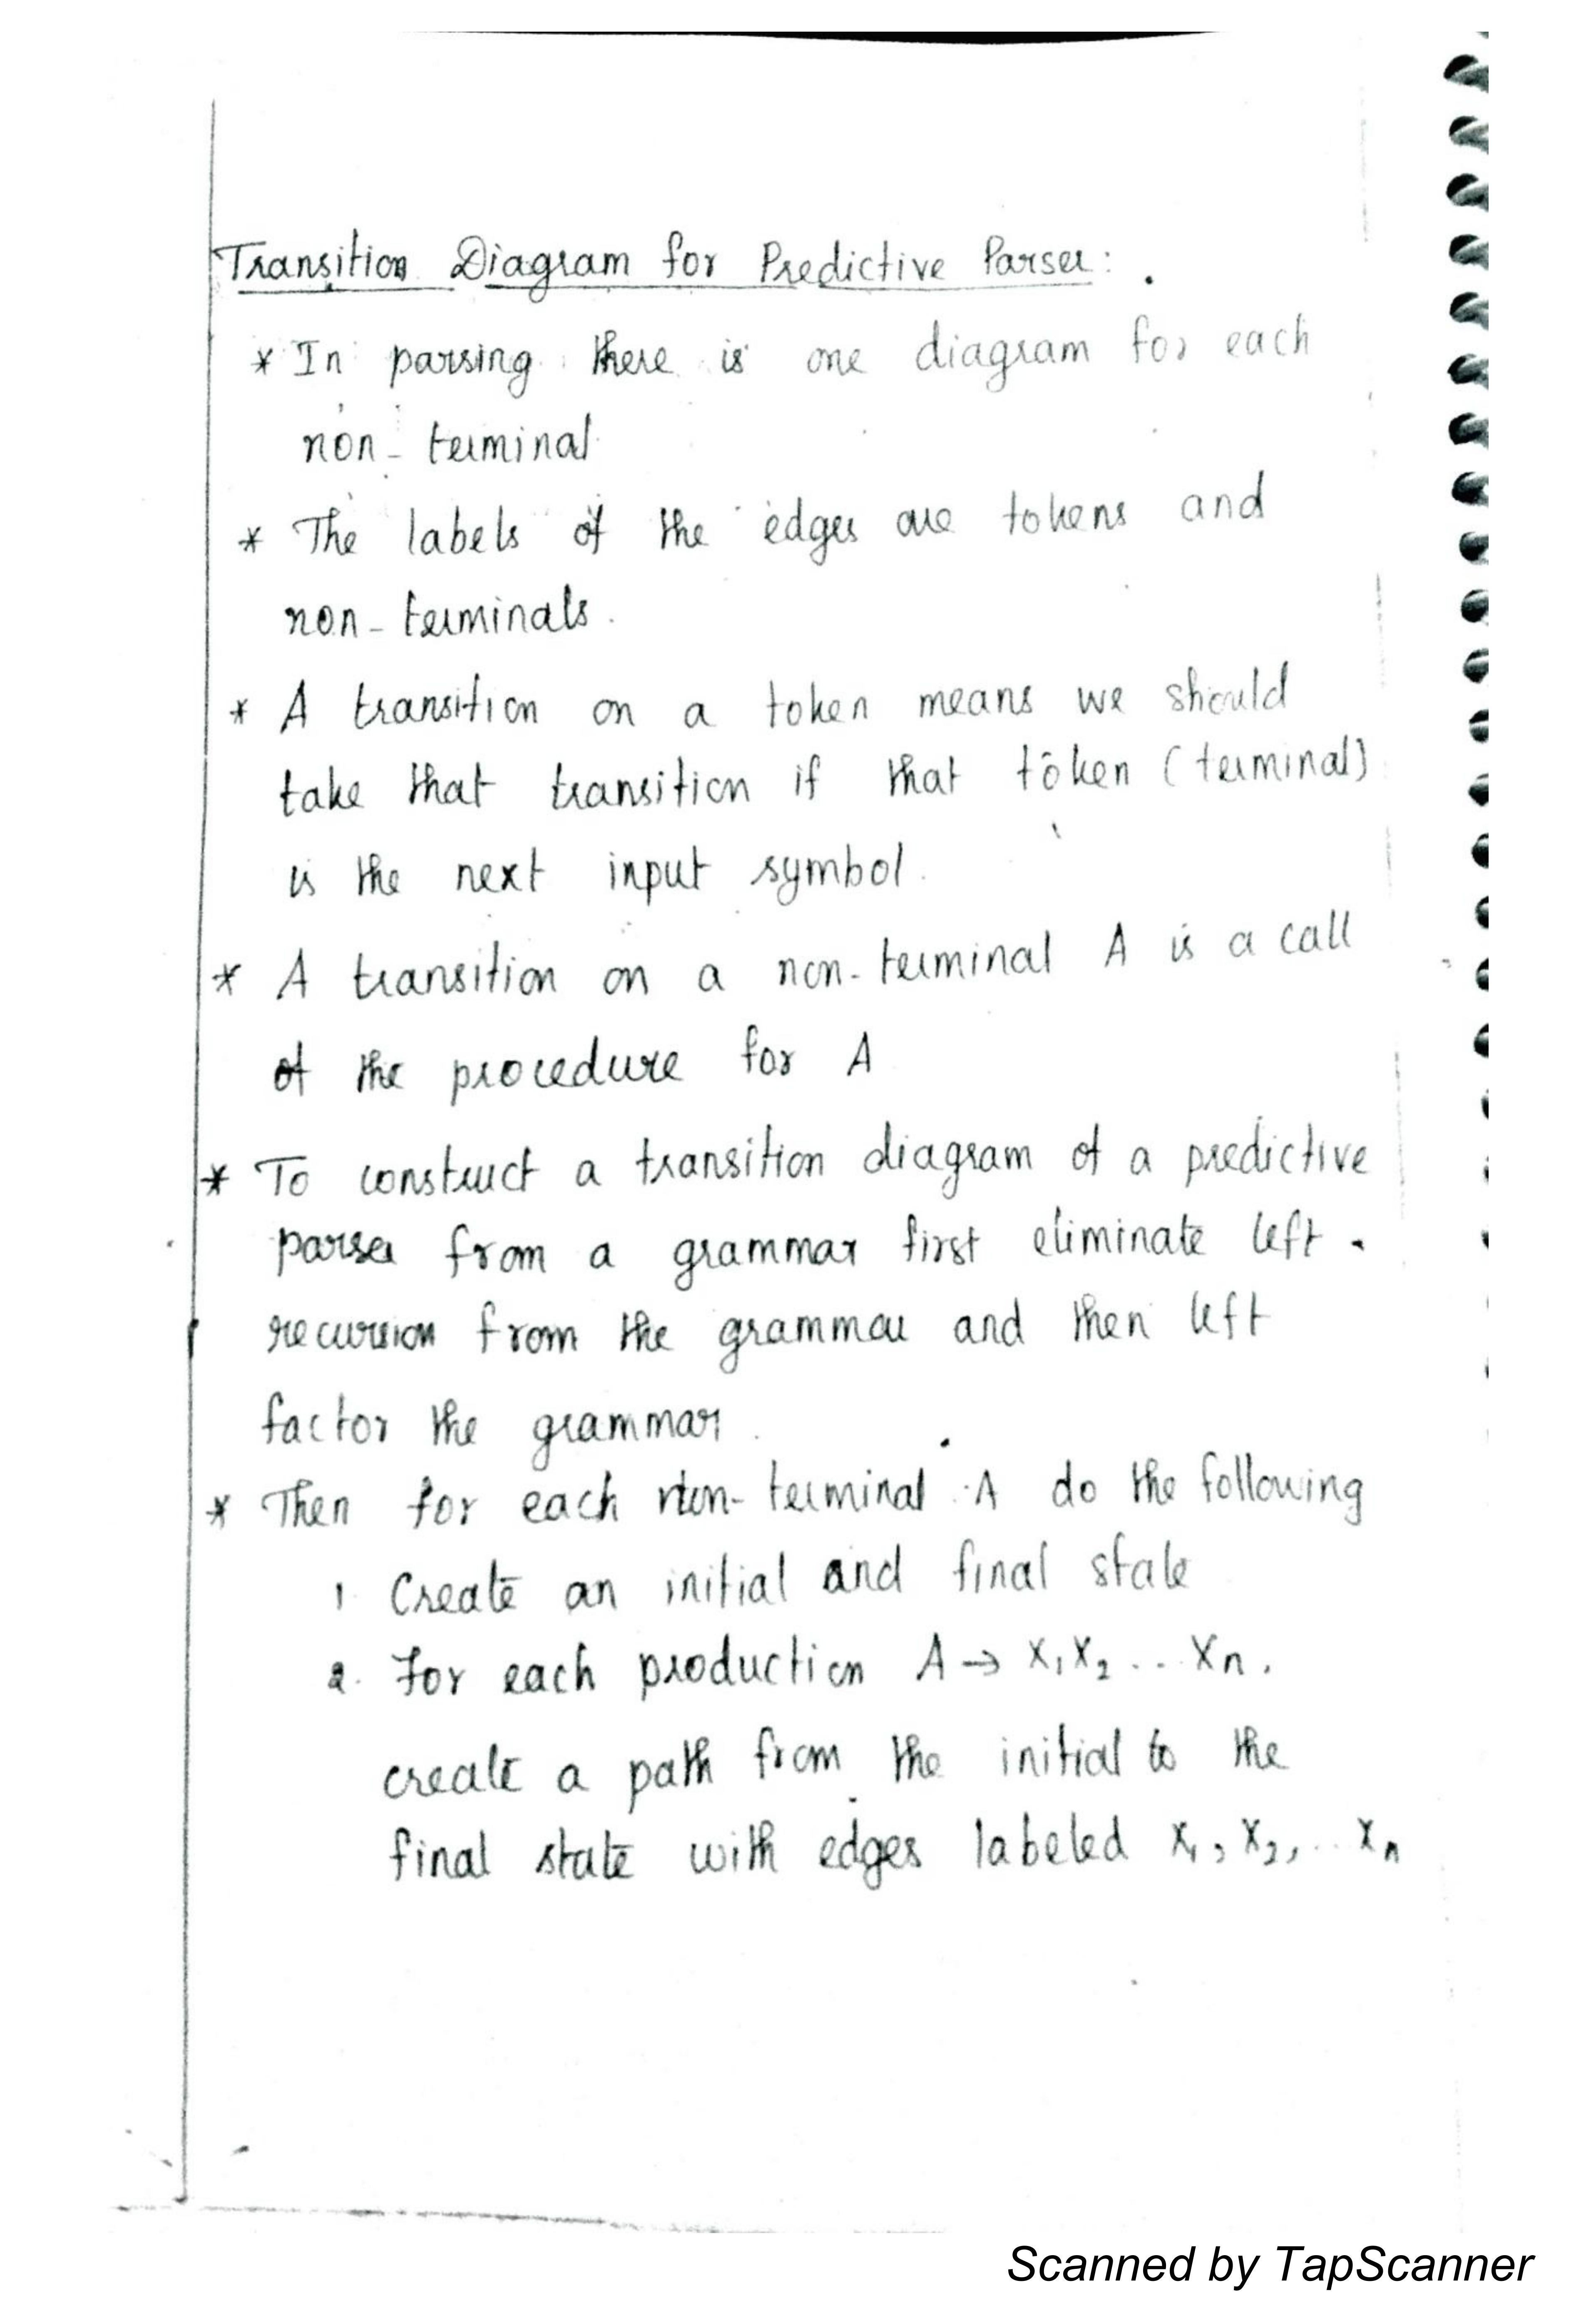 Transition Diagram for Predictive Parser:
* In parsing there is one diagram for each
non-terminal
* The labels of the edges are tokens and
non-terminals.
* A transition on a token means we should
take that transition if that token (terminal)
is the next input symbol.
* A transition on a non-terminal A is a call
of the procedure for A
* To construct a transition diagram of a predictive
parser from a grammar first eliminate left
recursion from the grammar and then left
factor the grammar.
* Then for each non-terminal A do the following
1. Create an initial and final state
2. For each production A → X₁X₂...Xn,
create a path from the initial to the
final state with edges labeled X₁, X₂,...Xn
Scanned by TapScanner